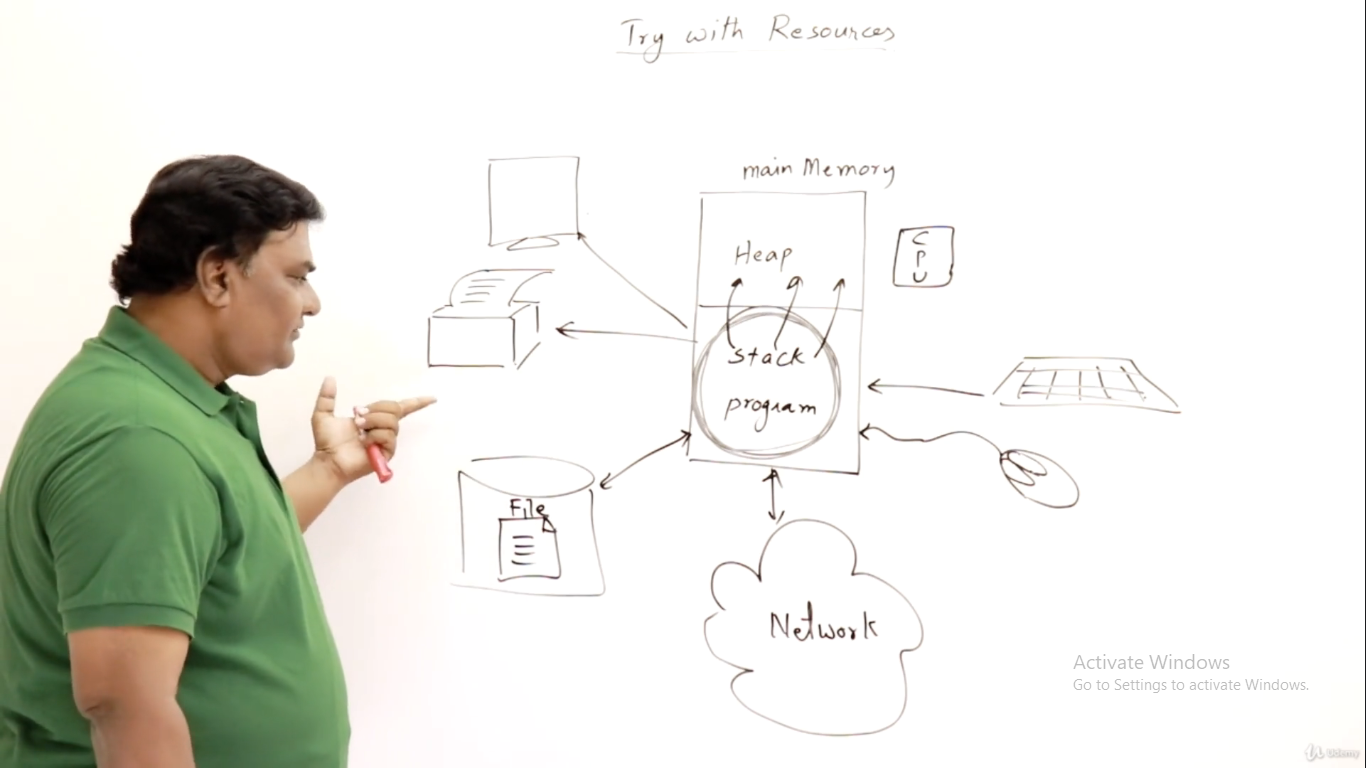 Try with Resources
main Memory
Heap
CPU
Stack
program
File
Network
Activate Windows
Go to Settings to activate Windows.
Udemy